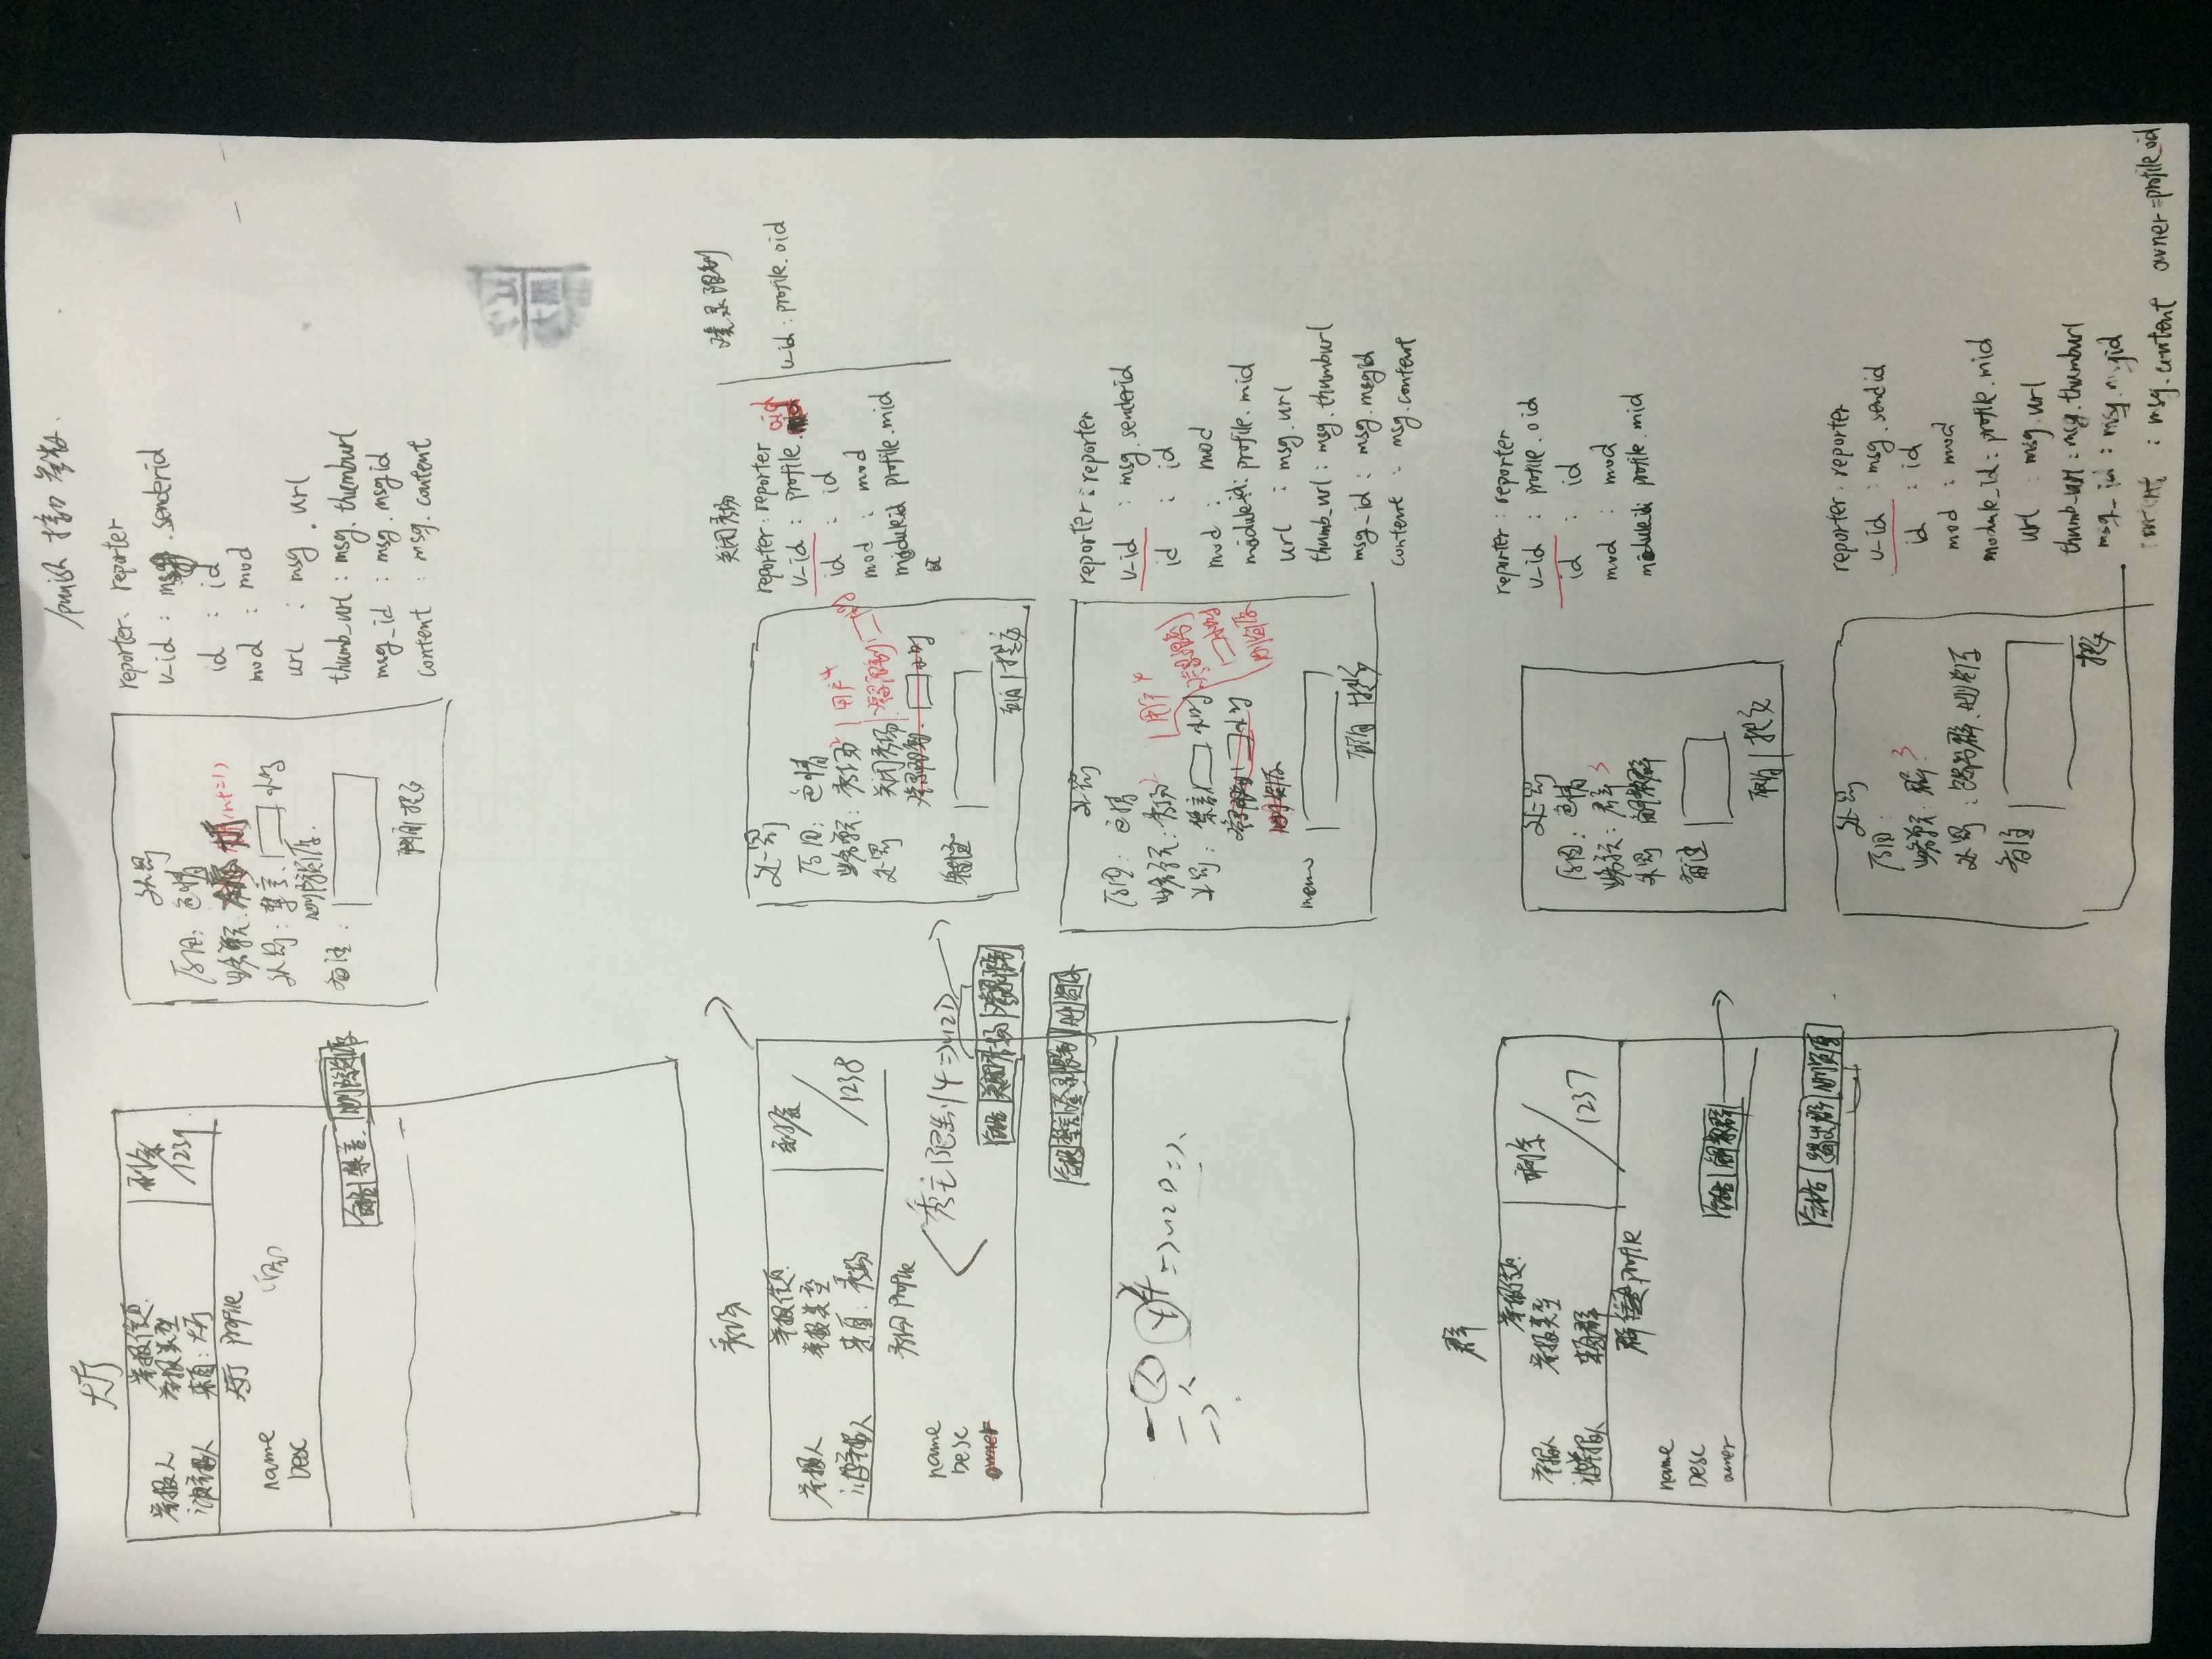 /punish 接口参数.
大厅
举报信息
举报人 举报类型
被举报人 来自：大厅
剩余
/1239
大厅 profile
name
Desc
合格 禁言 删除资源
处罚
原因：色情
业务单元：
处罚：禁言 小时
删除资源.
备注：
取消 提交
reporter: reporter
v_id : msg.senderid
id : id
mod : mod
url : msg.url
thumb_url : msg.thumburl
msg_id : msg.msgid
content : msg.content
秀场
举报信息
举报人 举报类型
被举报人 来自：秀场
剩余
/1238
秀场 profile
name
Desc
owner
合格 关闭秀场 登录限制
合格 禁言 登录限制 删资源
处罚
原因：色情
业务单元：秀场2 用户4
处罚 关闭秀场 登录限制
登录限制. 小时
备注
取消 提交
关闭秀场
reporter: reporter
v_id : profile.oid
id : id
mod : mod
moduleid profile.mid
登录限制
v_id : profile.oid
处罚
原因：色情
业务单元：秀场2 用户4
处罚：禁言 小时 登录限制
登录限制 小时 小时
删资源 删资源
memo
取消 提交
reporter: reporter
v_id : msg.senderid
id : id
mod : mod
moduleid: profile.mid
url : msg.url
thumb_url : msg.thumburl
msg_id : msg.msgid
content : msg.content
群
举报信息
举报人 举报类型
被举报人 来自群
剩余
/1237
群 profile
name
Desc
owner
合格 解散群
合格 踢出群 删资源
处罚
原因：色情
业务单元：群3
处罚 解散群
备注
取消 提交
reporter: reporter
v_id : profile.oid
id : id
mod : mod
moduleid: profile.mid
处罚
原因：
业务单元：群3
处罚：踢出群、删资源
备注
提交
reporter: reporter
v_id : msg.sendid
id : id
mod : mod
module_id: profile.mid
url : msg.url
thumb_url : msg.thumburl
msg_id : msg.msgid
: msg.content owner=profile_oid